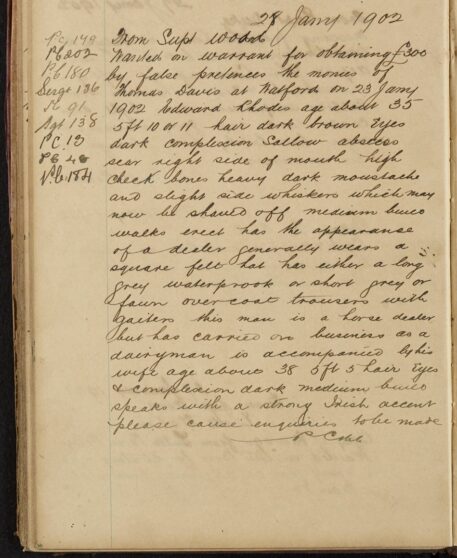 28 Jany 1902
Pc 179
Pc 202
Pc 180
Serge 136
91
Sgt 138
P.C. 13
Pc 40
P.C. 184
From Supt Wood
Wanted on warrant for obtaining £300
by false pretences the monies of
Thomas Davis at Watford on 23 Jany
1902 Edward Rhodes age about 35
5ft 10 or 11 hair dark brown Eyes
dark complexion Sallow abscess
scar right side of mouth high
cheek bones heavy dark moustache
and slight side whiskers which may
now be shaved off medium build
walks erect has the appearance
of a dealer generally wears a
square felt hat has either a long
grey waterproof or short grey or
fawn overcoat trousers with
gaiters this man is a horse dealer
but has carried on business as a
dairyman is accompanied by his
wife age about 38 5ft 5 hair Eyes
& complexion dark medium build
speaks with a strong Irish accent
please cause enquiries to be made
P Cobb